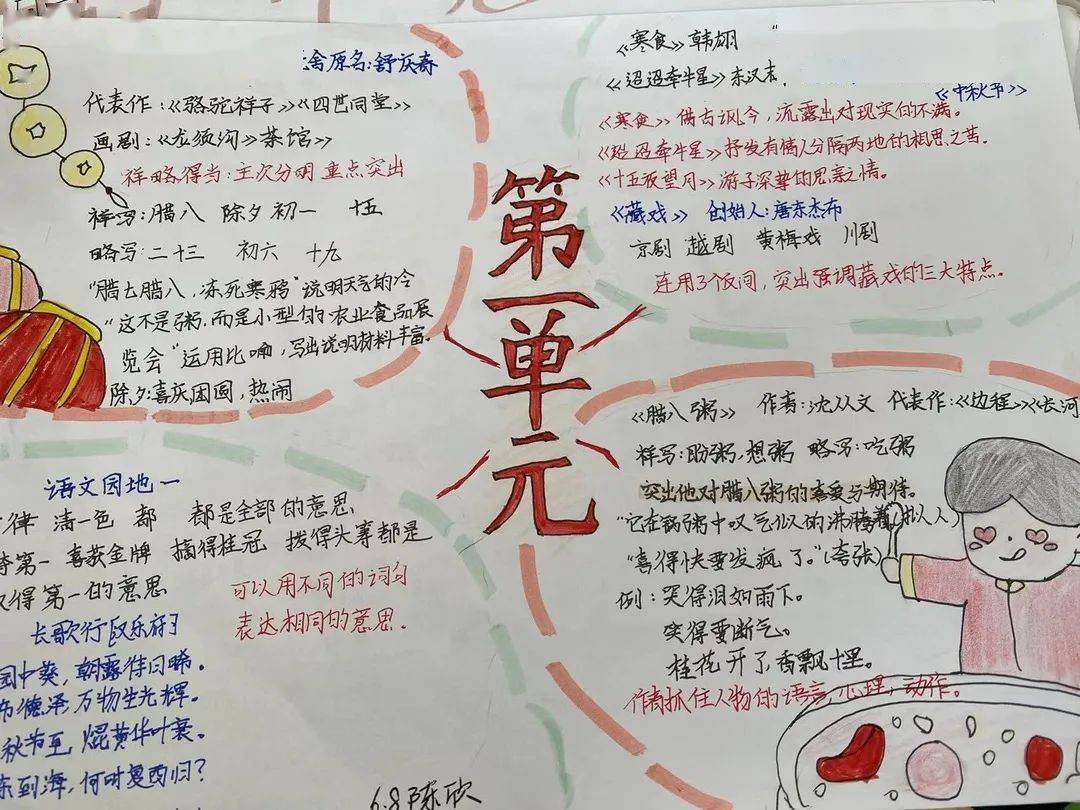 舍原名:舒庆春
代表作:《骆驼祥子》《四世同堂》
画剧:《龙须沟》茶馆》
祥略得当:主次分明 重点突出
祥写:腊八 除夕 初一 十五
略写:二十三 初六 十九
"腊七腊八,冻死寒鸦"说明天气的冷
"这不是粥,而是小型的农业食品展
览会"运用比喻,写出说明材料丰富。
除夕:喜庆团圆,热闹
第一单元
《寒食》韩翃
《迢迢牵牛星》东汉末
《中秋节》
《寒食》借古讽今,流露出对现实的不满。
《迢迢牵牛星》抒发有情人分隔两地的相思之苦.
《十五夜望月》游子深挚的思亲之情。
《藏戏》 创始人:唐东杰布
京剧 越剧 黄梅戏 川剧
连用3个反问,突出强调藏戏的三大特点。
《腊八粥》 作者:沈从文 代表作:《边程》《长河
祥写:盼粥,想粥 略写:吃粥
突出他对腊八粥的喜爱与期待。
"它在锅粥中叹气似的沸腾着 拟人
"喜得快要发疯了。"(夸张)
例:哭得泪如雨下。
笑得要断气。
桂花开了,香飘十里。
作者抓住人物的语言,心理,动作。
语文园地一
一律 清一色 都 都是全部的意思
第一 喜获金牌 摘得桂冠 拨得头筹都是
取得第一的意思
可以用不同的词句
表达相同的意思.
长歌行[汉乐府]
园中葵,朝露待日晞。
布德泽,万物生光辉。
秋节至,焜黄华叶衰。
东到海,何时复西归?
6.8陈欣